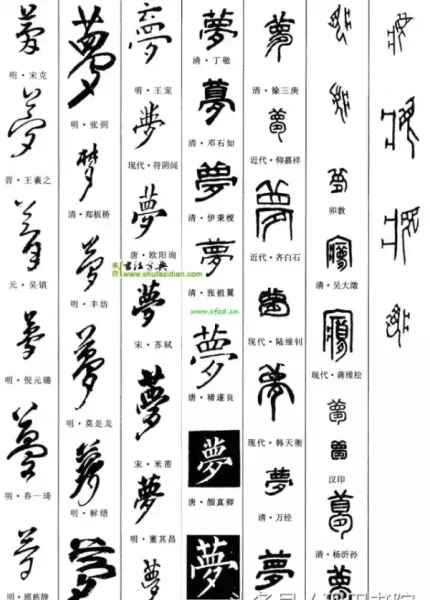 夢
明·宋克
夢
晋·王羲之
夢
元·吴镇
夢
明·倪元璐
夢
明·乔一琦
夢
明·邢慈静
夢
明·张弼
梦
清·郑板桥
夢
明·丰坊
夢
明·莫是龙
夢
明·解缙
夢
夢
明·王宠
夢
现代·符
夢
唐·欧阳询
书法字典
www.shufazidian.com
夢
宋·苏轼
夢
宋·米芾
夢
明·董其昌
夢
夢
清·丁敬
夢
清·邓石如
夢
清·伊秉绶
夢
清·张祖翼
www.sfzd.cn
夢
唐·褚遂良
夢
唐·颜真卿
夢
夢
清·徐三庚
夢
近代·仰嘉祥
夢
近代·齐白石
夢
现代·陆维钊
夢
现代·韩天衡
夢
清·万经
夢
夢
卯敦
清·吴大澂
现代·蒋维松
夢
汉印
夢
清·杨沂孙
夢